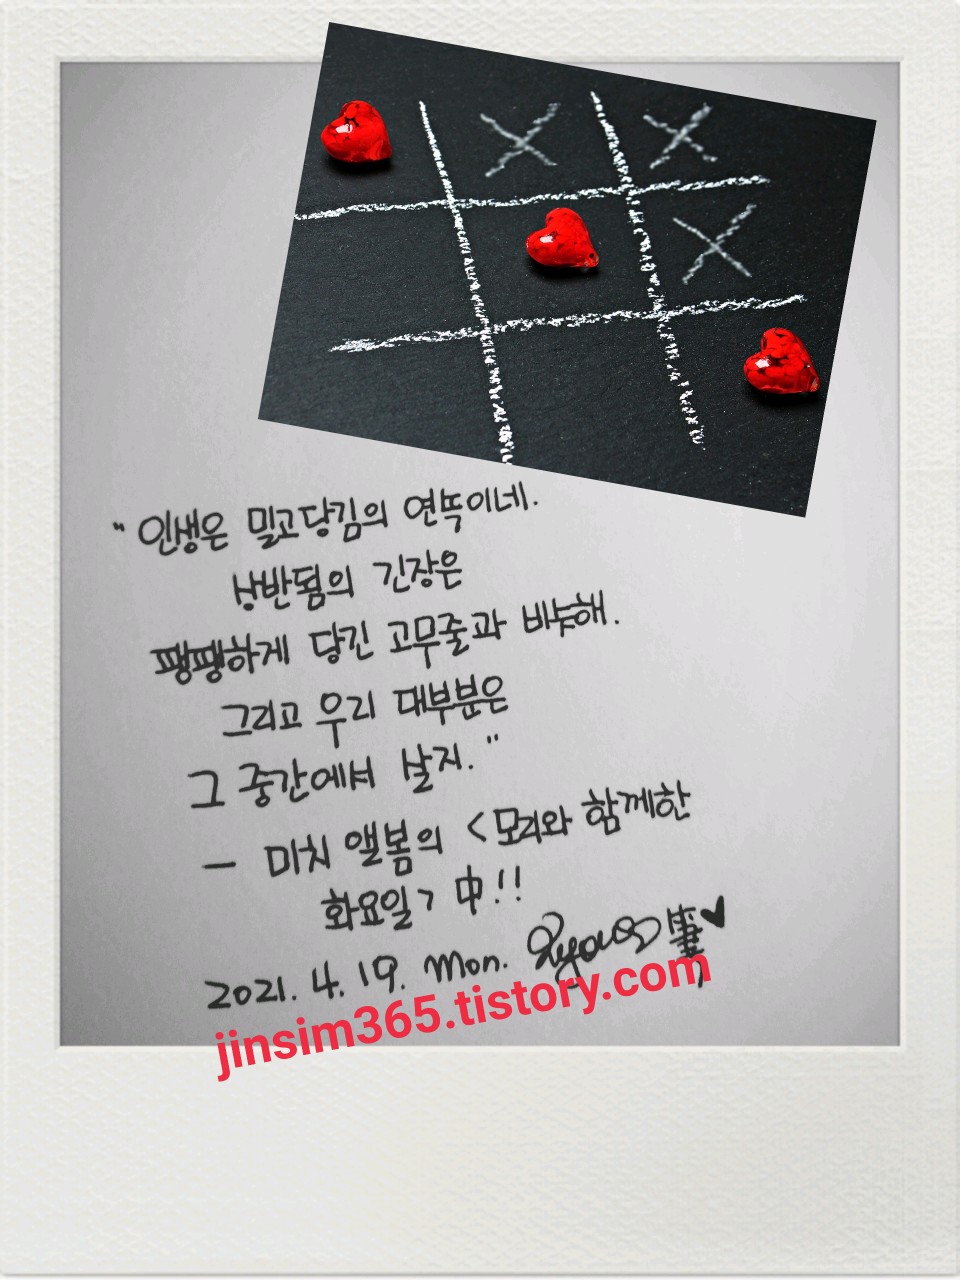 "인생은 밀고당김의 연뚝이네.
상반됨의 긴장은
팽팽하게 당긴 고무줄과 비슷해.
그리고 우리 대부분은
그 중간에서 살지."
- 미치 앨봄의 <모리와 함께한
화요일> 中!!
2021. 4. 19. Mon.
jinsim365.tistory.com